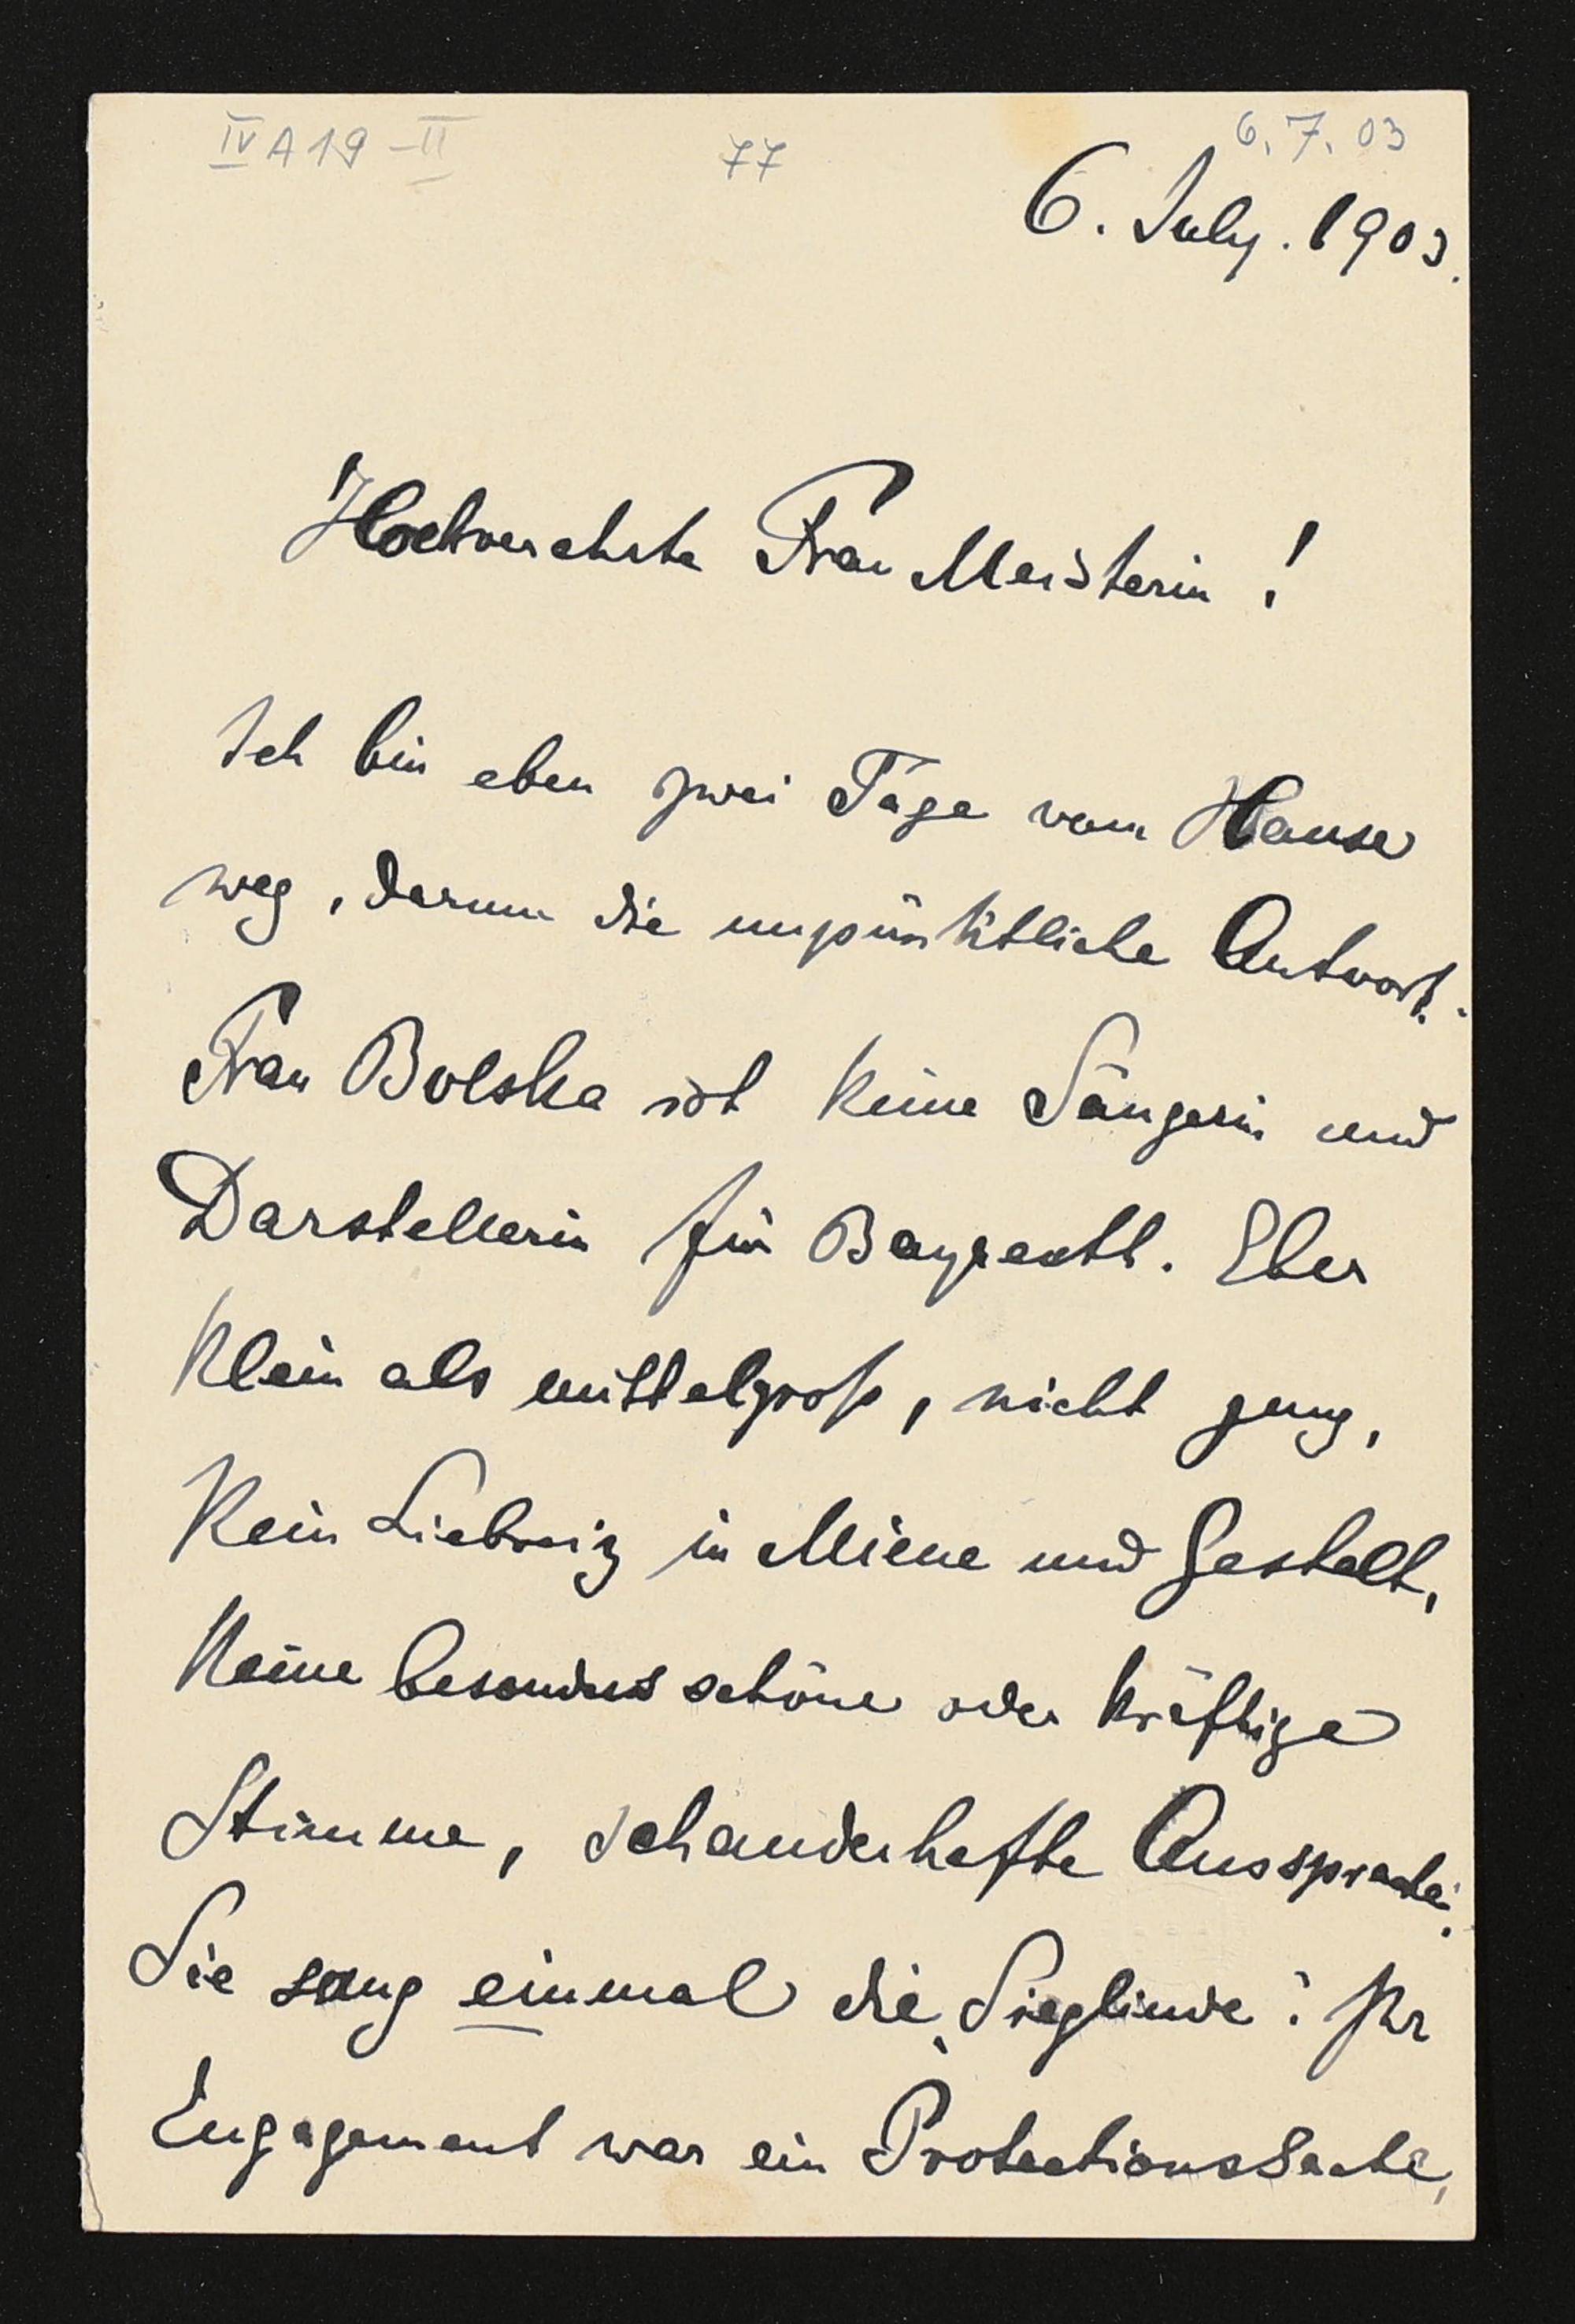 IV A 19 - II 77 6. 7. 03
6. July. 1903.
Hochverehrte Frau Meisterin!
Ich bin eben zwei Tage vom Hause
weg, darum die unpünktliche Antwort.
Frau Bolska ist keine Sängerin und
Darstellerin für Bayreuth. Eher
klein als mittelgroß, nicht jung,
kein Liebreiz in Miene und Gestalt,
keine besonders schöne oder kräftige
Stimme, schauderhafte Aussprache.
Sie sang einmal die Sieglinde: Ihr
Engagement war ein Protectionssache,